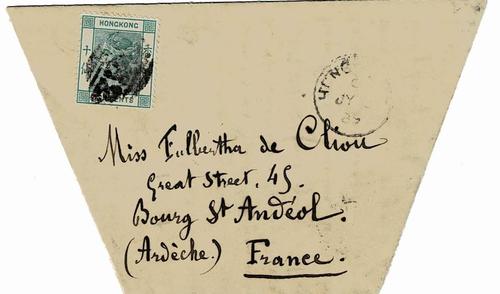 HONGKONG
CENTS
Miss Fulbertha de Chiou
Great Street, 45.
Bourg St Andéol.
(Ardèche.) France.